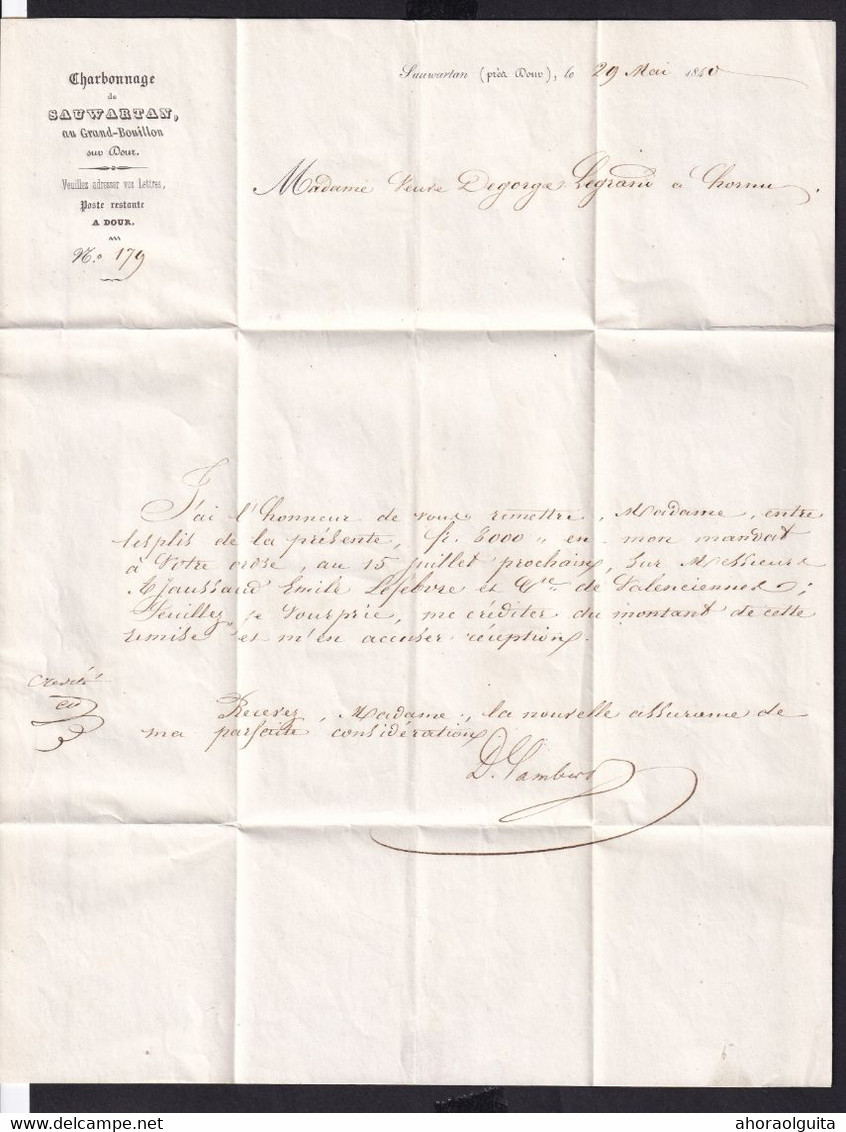 Charbonnage
de
SAUWARTAN,
au Grand-Bouillon
sur Dour.
Veuillez adresser vos Lettres,
Poste restante
A DOUR.
N.o 179
Sauwartan (près Dour), le 29 Mai 1840
Madame Veuve Degorge Legrand à hornu
J'ai l'honneur de vous remettre, Madame, entre
les plis de la présente, fr. 8000 „ en mon mandat
à Votre ordre, au 15 juillet prochain, sur Messieurs
Emile Lefebvre et Cie. de Valenciennes;
Veuillez, je vous prie, me créditer du montant de cette
remise et m'en accuser réception.
Crédité
Recevez, Madame, la nouvelle assurance de
ma parfaite considération
D. Lambert
ahoraolguita